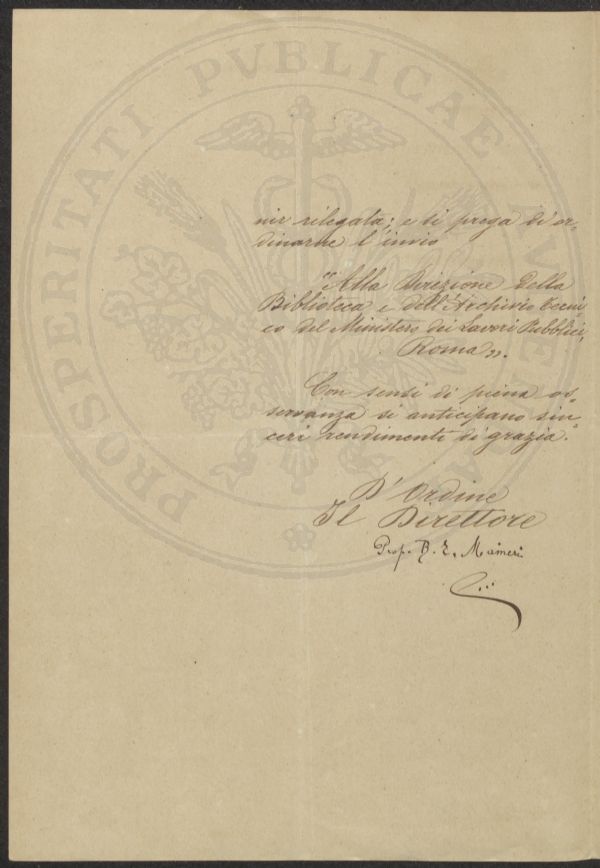 PROSPERITATI PVBLICAE
nir rilegata; e si prega di or-
dinarne l'invio
"Alla Direzione della
Biblioteca e dell'Archivio tecni-
co del Ministero dei Lavori Pubblici,
Roma".
Con sensi di piena os-
servanza si anticipano sin-
ceri rendimenti di grazia.
D'Ordine
Il Direttore
Prof. B. E. Maineri